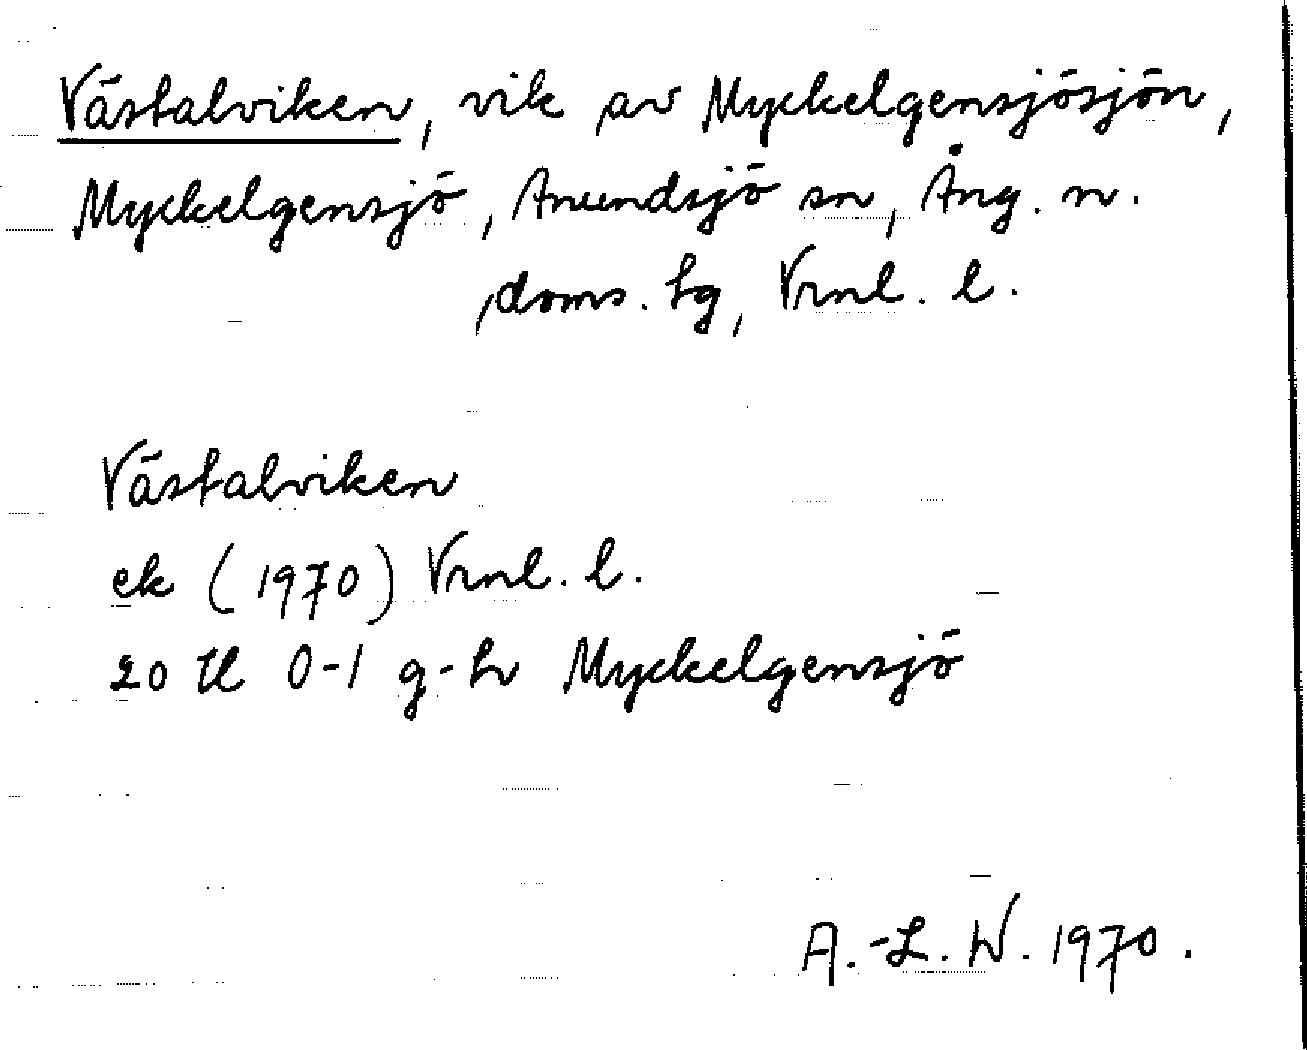 Västalviken, vik av Myckelgensjösjön,
Myckelgensjö, Anundsjö sn, Ång. n.
doms. hg, Vrnl. l.
Västalviken
ek (1970) Vrnl. l.
20 H 0-1 g-h Myckelgensjö
A.-L. W. 1970.